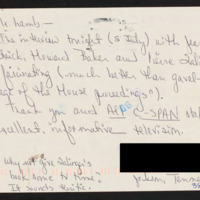 Mr. Lamb —
The interview tonight (5 July) with
Howard Baker and Pierre
fascinating (much better than gavel-
of the House proceedings).
Thank you and all C-SPAN
excellent, informative television.
Why not give Salinger's
book some tv time?
It sounds terrific.
Jackson, Tenness